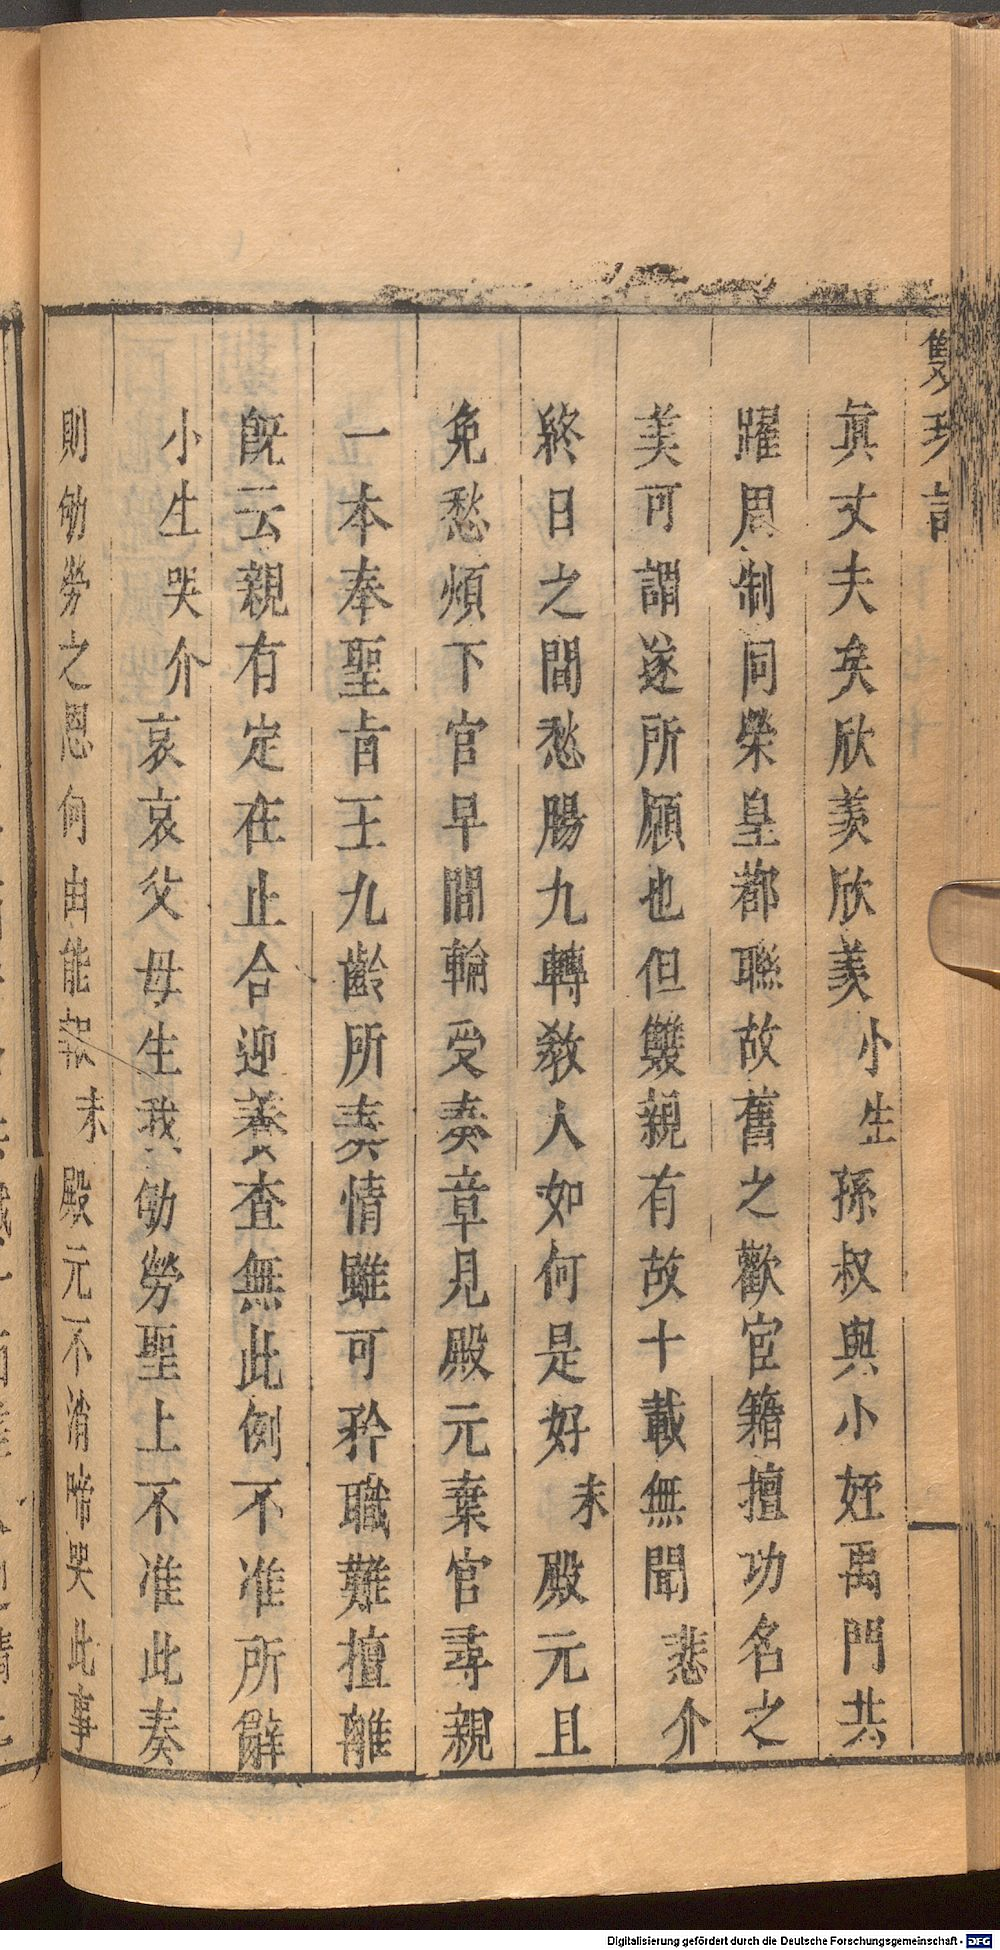 雙珠記
真丈夫矣欣羨欣羨小生孫叔與小姪禹門共
躍周制同榮皇都聯故舊之歡宦籍擅功名之
美可謂遂所願也但雙親有故十載無聞悲介
終日之間愁腸九轉敎人如何是好末殿元且
免愁煩下官早間輪受奏章見殿元棄官尋親
一本奉聖旨王九齡所奏情雖可矜職難擅離
旣云親有定在止合迎養查無此例不准所辭
小生哭介哀哀父母生我劬勞聖上不准此奏
則劬勞之恩何由能報末殿元不消啼哭此事
Digitalisierung gefördert durch die Deutsche Forschungsgemeinschaft - DFG